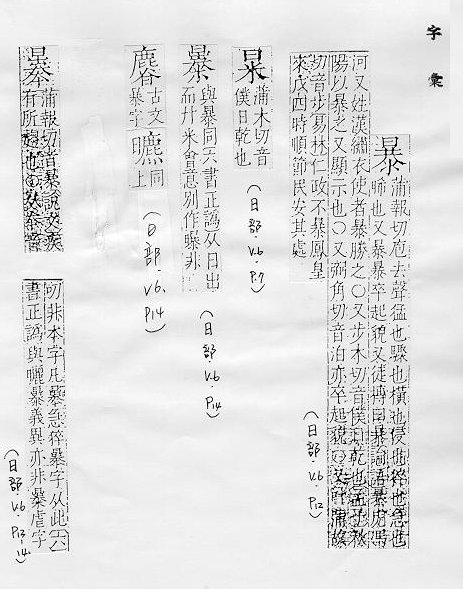 字彙
暴 蒲報切庖去聲猛也驟也橫也侵也猝也急也
晞也又暴暴卒起貌又徒搏曰暴論語暴虎馮
河又姓漢繡衣使者暴勝之○又步木切音僕日乾也孟子秋
陽以暴之又顯示也○又弼角切音泊亦卒起貌○又叶蒲故
切音步易林仁政不暴鳳皇
來戌四時順節民安其處
(日部.V.6.P12)
㬥 蒲木切音
僕日乾也
(日部.V.6.P.7)
㬥 與暴同六書正譌从日出
而廾米會意別作曝非
(日部.V.6.P14)
古文
暴字
同
上
(日部.V6.P14)
蒲報切音暴說文疾
有所趣也
切非本字凡暴急猝暴字从此六
書正譌與曬暴義異亦非暴虐字
(日部.V.6.P13-14)